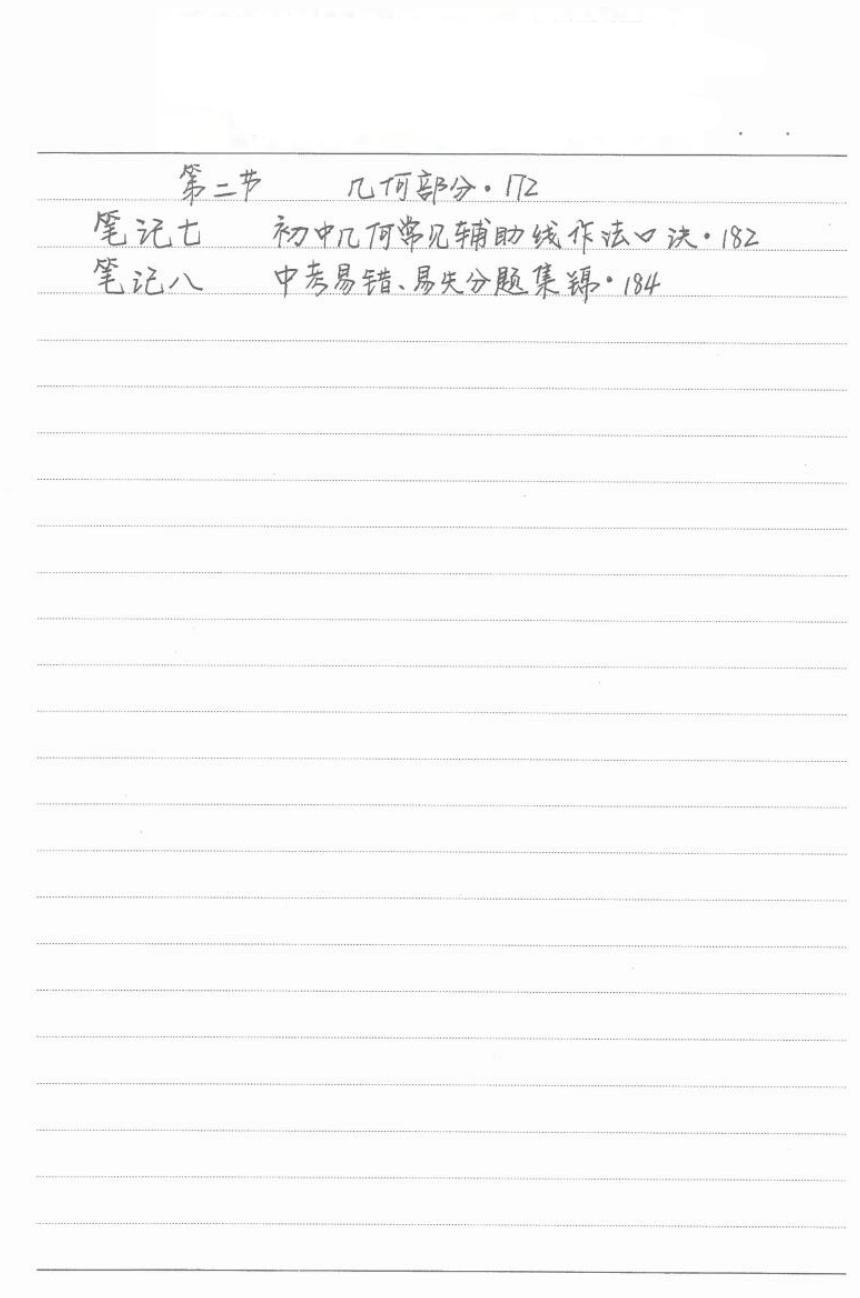 第二节 几何部分·172
笔记七 初中几何常见辅助线作法口诀·182
笔记八 中考易错、易失分题集锦·184